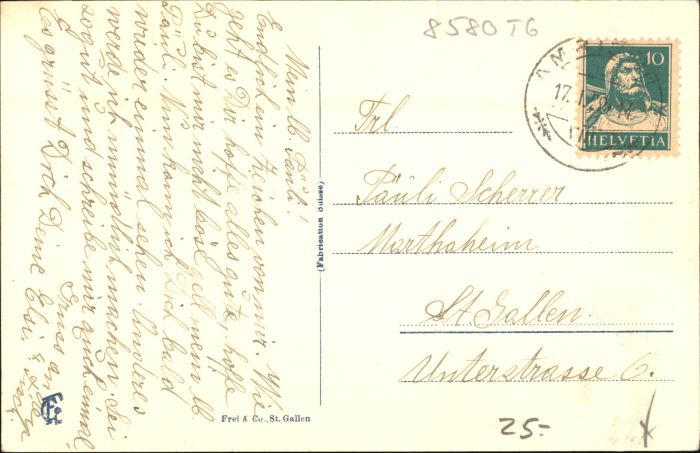 Mein lb. Päuli!
Endlich ein Zeichen von mir. Wie
geht es Dir, hoffe alles gute, hoffe
Du bist mir nicht böse, gell mein lb
Päuli. Nun kann ich Dich bald
wieder einmal sehen.
werde ich mündlich machen. Sei
so gut und schreibe mir auch einmal
Es grüsst Dich Deine Elsi.
Gruss an
(Fabrication Suisse)
Frei & Co., St. Gallen
8580 TG
10
HELVETIA
Frl.
Päuli Scherrer
Marthaheim
St. Gallen.
Unterstrasse 6.
25.-